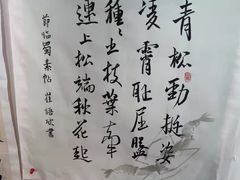 青松勁挺姿
凌霄耻屈盤
種種出枝葉牽
連上松端秋花起
節臨蜀素帖 崔書